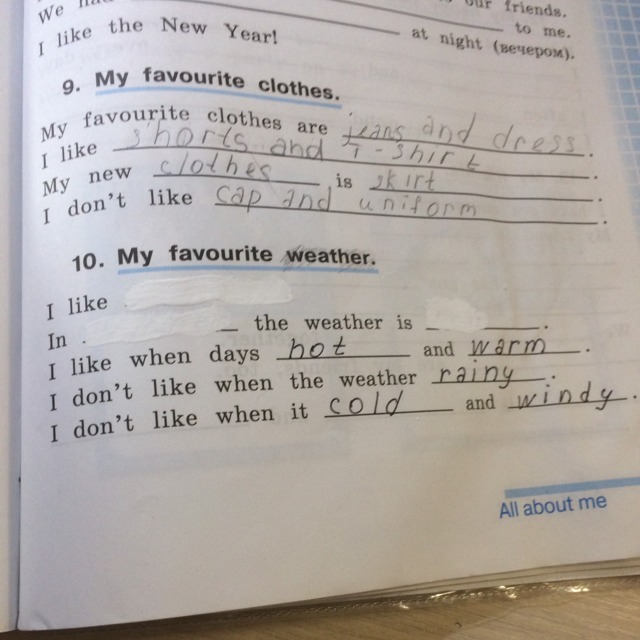 We had our friends.
to me.
I like the New Year! at night (вечером).
9. My favourite clothes.
My favourite clothes are jeans and dress.
I like shorts and T-shirt.
My new clothes is skirt.
I don't like cap and uniform.
10. My favourite weather.
I like
In the weather is .
I like when days hot and warm.
I don't like when the weather rainy.
I don't like when it cold and windy.
All about me